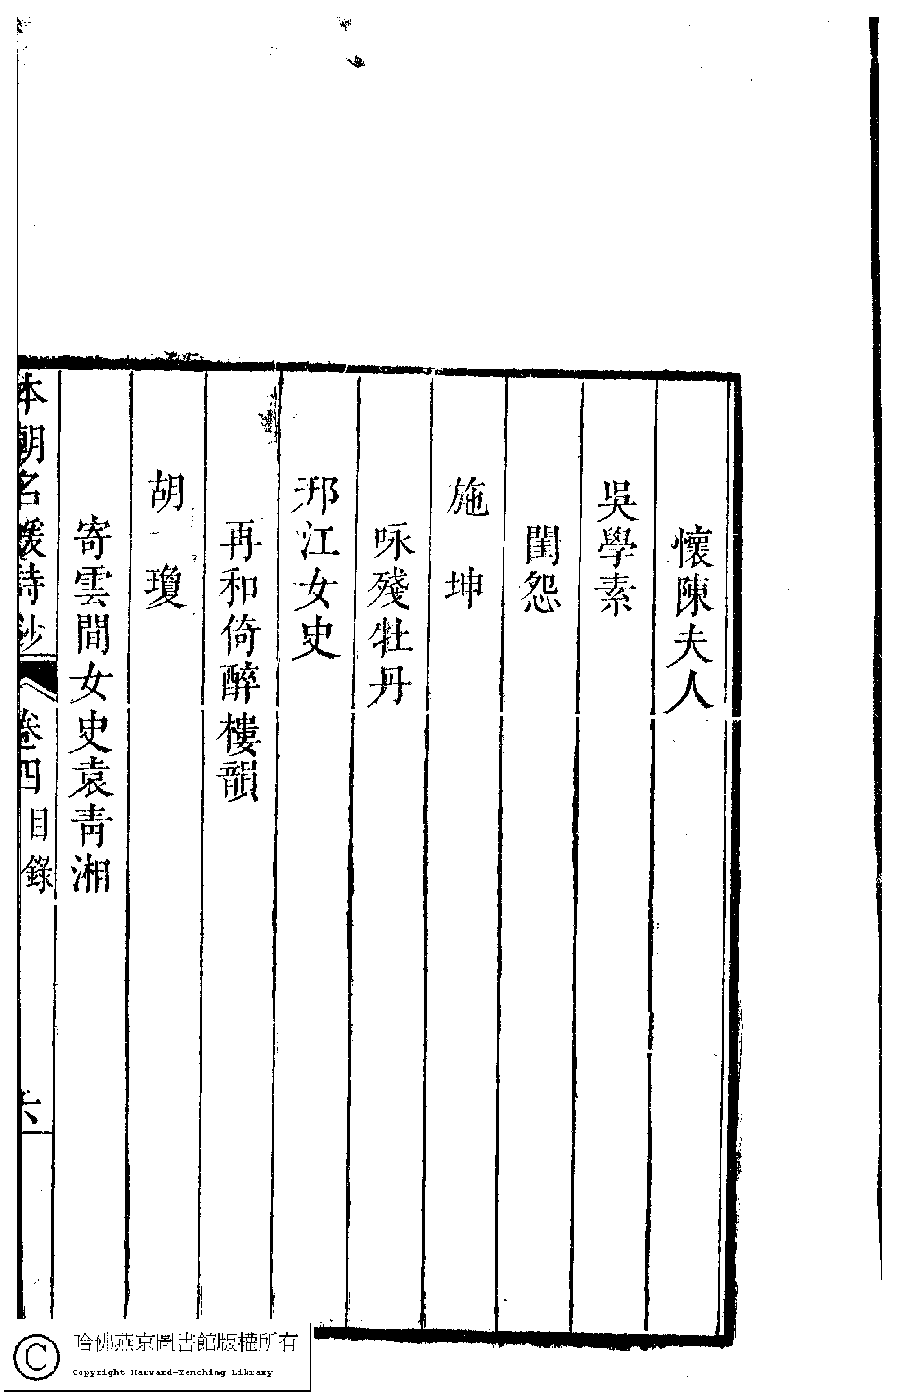 懷陳夫人
吳學素
閨怨
施坤
咏殘牡丹
邗江女史
再和倚醉樓韻
胡瓊
寄雲間女史袁青湘
本朝名媛詩鈔 卷四目錄 六
哈佛燕京圖書館版權所有
Copyright Harvard-Yenching Library